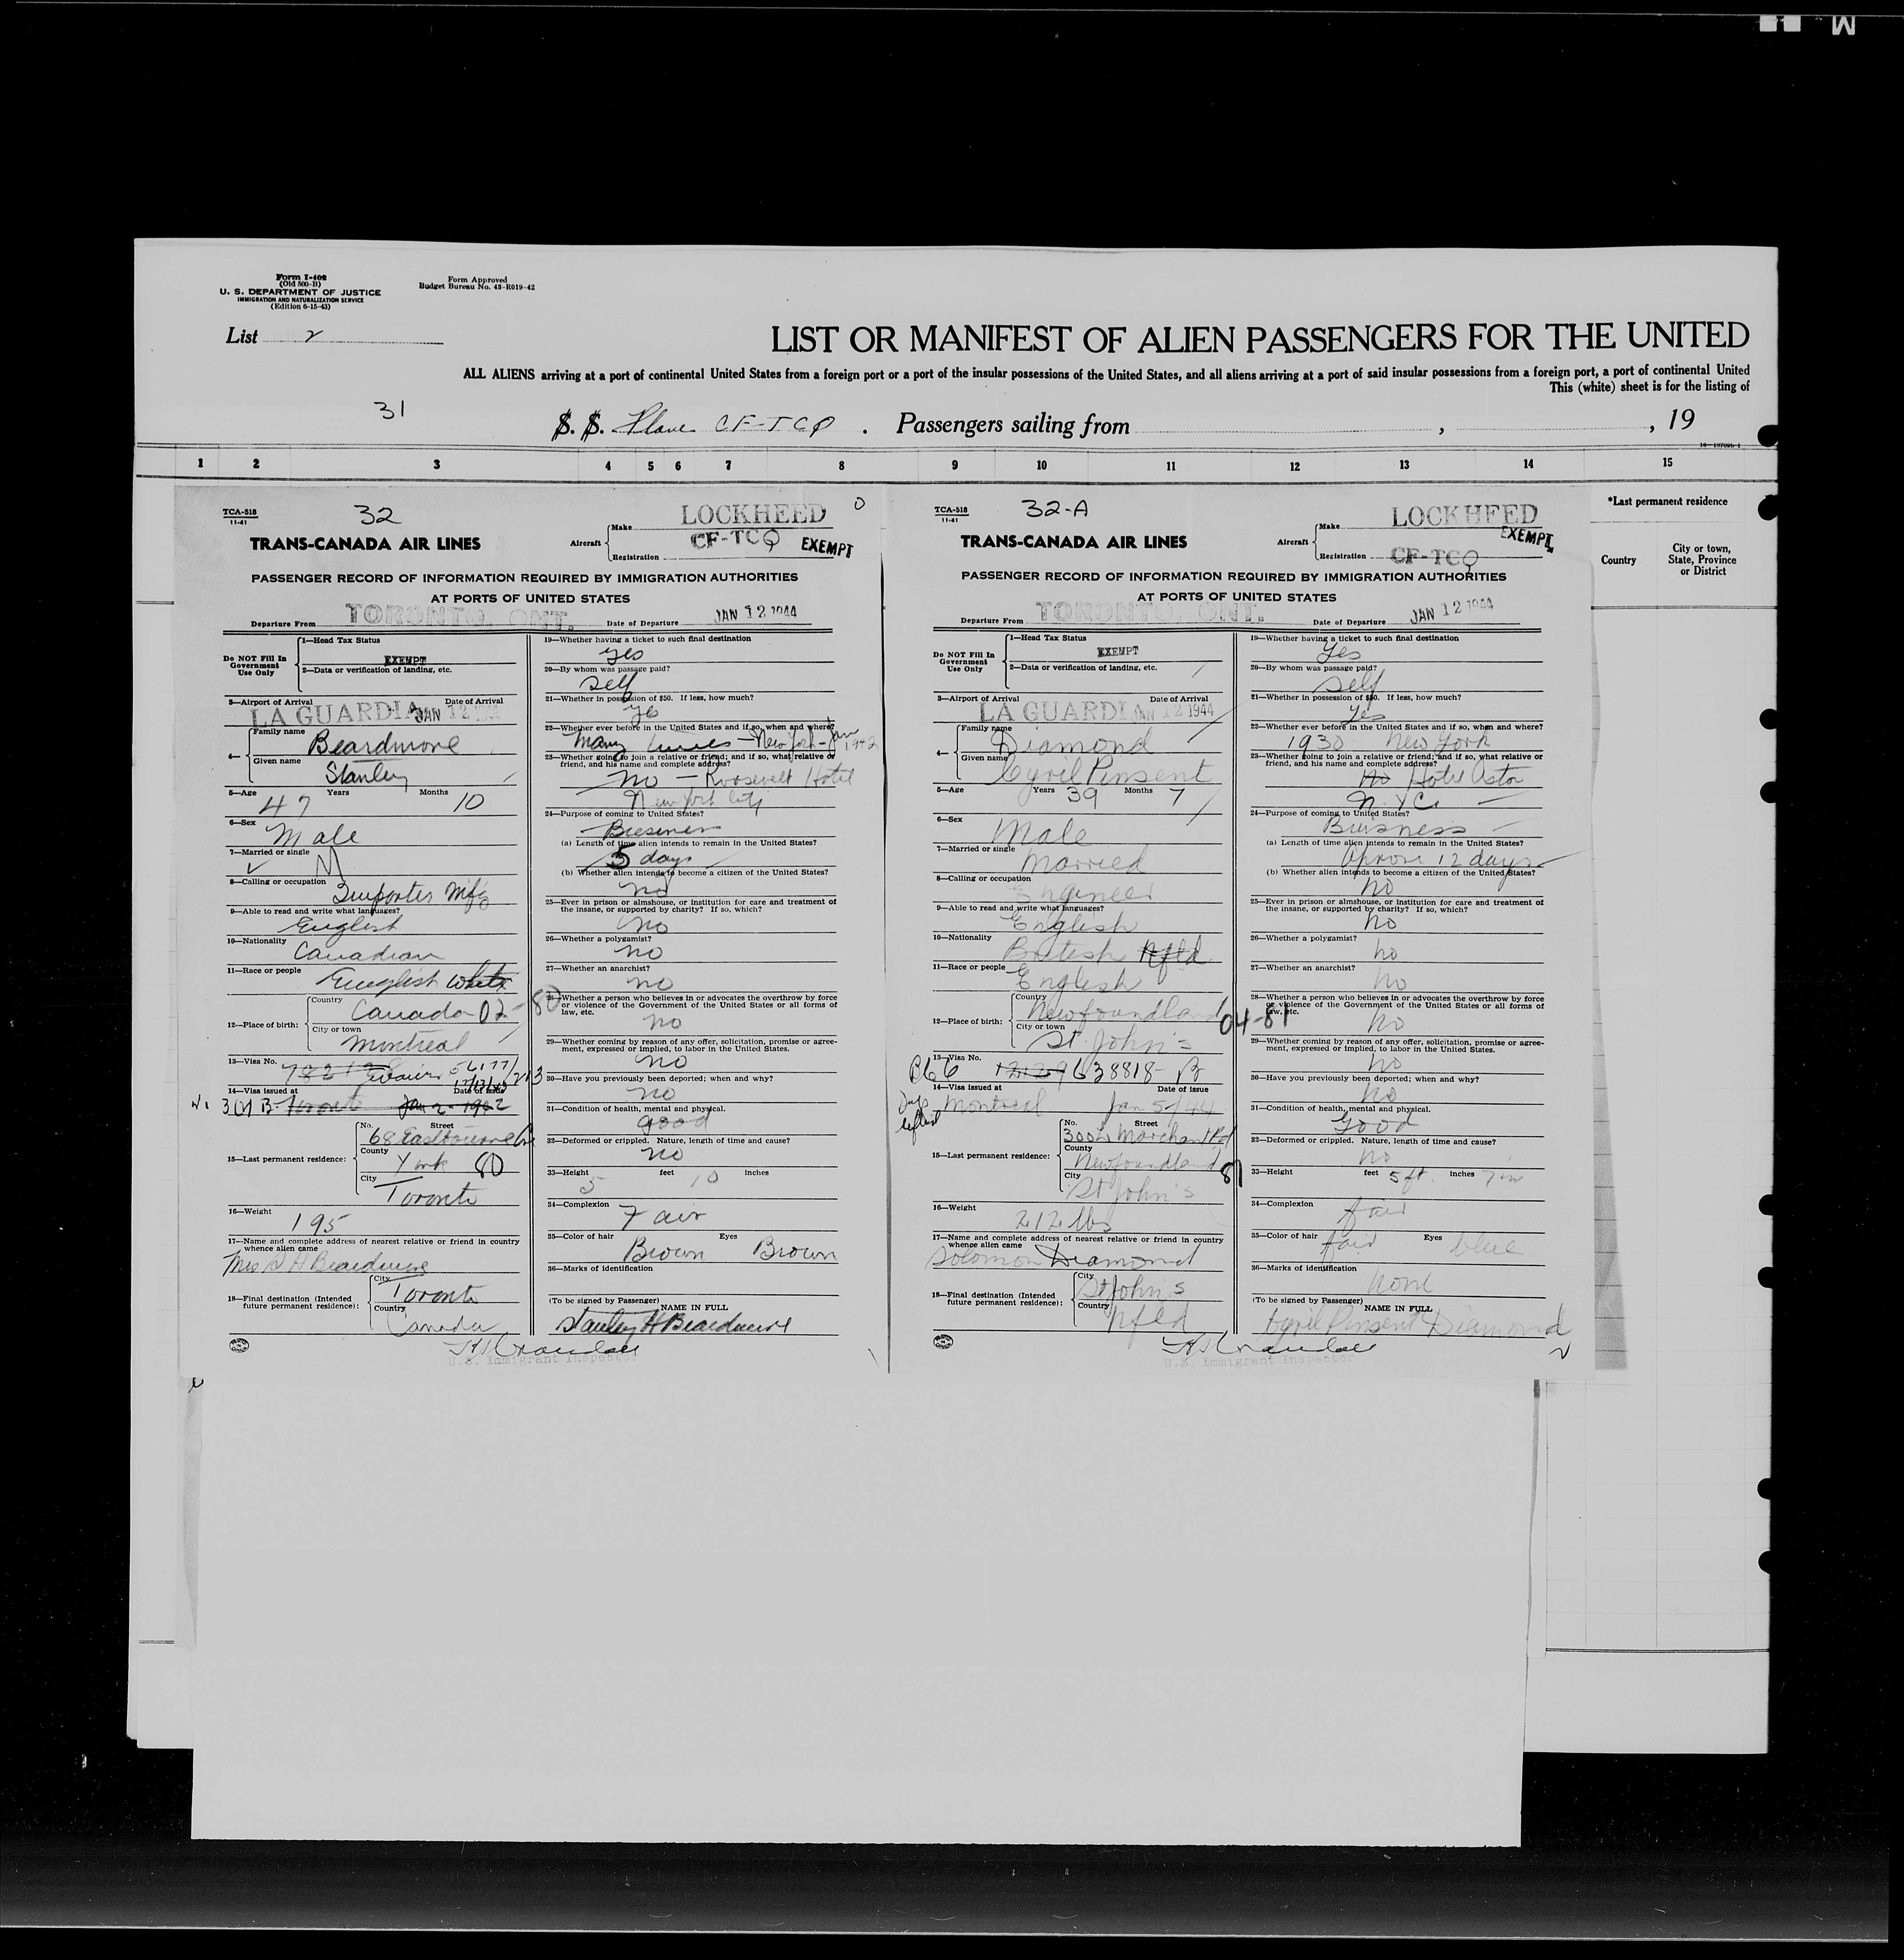 Form I-402
(Old 500-B)
U. S. DEPARTMENT OF JUSTICE
IMMIGRATION AND NATURALIZATION SERVICE
(Edition 6-15-43)
Form Approved
Budget Bureau No. 43-R019-42
List 2
LIST OR MANIFEST OF ALIEN PASSENGERS FOR THE UNITED
ALL ALIENS arriving at a port of continental United States from a foreign port or a port of the insular possessions of the United States, and all aliens arriving at a port of said insular possessions from a foreign port, a port of continental United
This (white) sheet is for the listing of
31
S. S. Plane CF-TCQ . Passengers sailing from , , 19
1 2 3 4 5 6 7 8 9 10 11 12 13 14 15
*Last permanent residence
Country
City or town, State, Province or District
TCA-518
11-41
32
0
TRANS-CANADA AIR LINES
Aircraft
Make LOCKHEED
Registration CF-TCQ EXEMPT
PASSENGER RECORD OF INFORMATION REQUIRED BY IMMIGRATION AUTHORITIES
AT PORTS OF UNITED STATES
Departure From TORONTO, ONT. Date of Departure JAN 12 1944
Do NOT Fill In Government Use Only
1—Head Tax Status
EXEMPT
2—Data or verification of landing, etc.
3—Airport of Arrival Date of Arrival
LA GUARDIA JAN 12 1944
4—
Family name
Beardmore
Given name
Stanley
5—Age 47 Years Months 10
6—Sex
Male
7—Married or single
M
8—Calling or occupation
Importer Mfg
9—Able to read and write what languages?
English
10—Nationality
Canadian
11—Race or people
English White
12—Place of birth:
Country
Canada 02-80
City or town
Montreal
13—Visa No.
56177/213
14—Visa issued at Date of issue
3(2) B Toronto Jan 2-1942
15—Last permanent residence:
No. Street
68 Eastbourne Ave
County
York 80
City
Toronto
16—Weight
195
17—Name and complete address of nearest relative or friend in country whence alien came
Mrs S H Beardmore
18—Final destination (Intended future permanent residence):
City
Toronto
Country
Canada
19—Whether having a ticket to such final destination
yes
20—By whom was passage paid?
self
21—Whether in possession of $50. If less, how much?
yes
22—Whether ever before in the United States and if so, when and where?
Many times — New York - Jan 1942
23—Whether going to join a relative or friend; and if so, what relative or friend, and his name and complete address?
No — Roosevelt Hotel
New York City
24—Purpose of coming to United States?
Business
(a) Length of time alien intends to remain in the United States?
5 days
(b) Whether alien intends to become a citizen of the United States?
no
25—Ever in prison or almshouse, or institution for care and treatment of the insane, or supported by charity? If so, which?
no
26—Whether a polygamist?
no
27—Whether an anarchist?
no
28—Whether a person who believes in or advocates the overthrow by force or violence of the Government of the United States or all forms of law, etc.
no
29—Whether coming by reason of any offer, solicitation, promise or agreement, expressed or implied, to labor in the United States.
no
30—Have you previously been deported; when and why?
no
31—Condition of health, mental and physical.
good
32—Deformed or crippled. Nature, length of time and cause?
no
33—Height 5 feet 10 inches
34—Complexion
Fair
35—Color of hair Eyes
Brown Brown
36—Marks of identification
(To be signed by Passenger)
NAME IN FULL
Stanley H Beardmore
U.S. Immigrant Inspector
TCA-518
11-41
32-A
TRANS-CANADA AIR LINES
Aircraft
Make LOCKHEED
EXEMPT
Registration CF-TCQ
PASSENGER RECORD OF INFORMATION REQUIRED BY IMMIGRATION AUTHORITIES
AT PORTS OF UNITED STATES
Departure From TORONTO, ONT. Date of Departure JAN 12 1944
Do NOT Fill In Government Use Only
1—Head Tax Status
EXEMPT
2—Data or verification of landing, etc.
3—Airport of Arrival Date of Arrival
LA GUARDIA JAN 12 1944
4—
Family name
Diamond
Given name
Cyril Pinsent
5—Age Years 39 Months 7
6—Sex
Male
7—Married or single
Married
8—Calling or occupation
Engineer
9—Able to read and write what languages?
English
10—Nationality
British Nfld
11—Race or people
English
12—Place of birth:
Country
Newfoundland 04-81
City or town
St. John's
13—Visa No.
638818
14—Visa issued at Date of issue
Montreal Jan 5/44
15—Last permanent residence:
No. Street
County
Newfoundland 81
City
St John's
16—Weight
212 lbs
17—Name and complete address of nearest relative or friend in country whence alien came
Solomon Diamond
18—Final destination (Intended future permanent residence):
City
St John's
Country
Nfld
19—Whether having a ticket to such final destination
Yes
20—By whom was passage paid?
Self
21—Whether in possession of $50. If less, how much?
Yes
22—Whether ever before in the United States and if so, when and where?
1930 New York
23—Whether going to join a relative or friend; and if so, what relative or friend, and his name and complete address?
no Hotel Astor
N.Y.C.
24—Purpose of coming to United States?
Buisness
(a) Length of time alien intends to remain in the United States?
Aprox 12 days
(b) Whether alien intends to become a citizen of the United States?
no
25—Ever in prison or almshouse, or institution for care and treatment of the insane, or supported by charity? If so, which?
no
26—Whether a polygamist?
no
27—Whether an anarchist?
no
28—Whether a person who believes in or advocates the overthrow by force or violence of the Government of the United States or all forms of law, etc.
no
29—Whether coming by reason of any offer, solicitation, promise or agreement, expressed or implied, to labor in the United States.
no
30—Have you previously been deported; when and why?
no
31—Condition of health, mental and physical.
Good
32—Deformed or crippled. Nature, length of time and cause?
no
33—Height feet 5 ft. inches 7 in
34—Complexion
fair
35—Color of hair fair Eyes blue
36—Marks of identification
none
(To be signed by Passenger)
NAME IN FULL
Cyril Pinsent Diamond
U.S. Immigrant Inspector